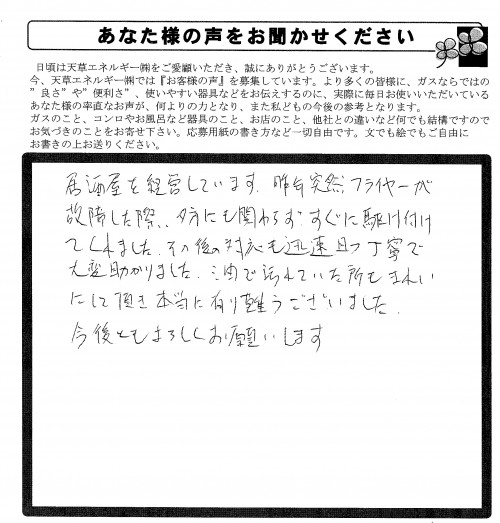 あなた様の声をお聞かせください
日頃は天草エネルギー㈱をご愛顧いただき、誠にありがとうございます。
今、天草エネルギー㈱では『お客様の声』を募集しています。より多くの皆様に、ガスならではの
”良さ”や”便利さ”、使いやすい器具などをお伝えするのに、実際に毎日お使いいただいている
あなた様の率直なお声が、何よりの力となり、また私どもの今後の参考となります。
ガスのこと、コンロやお風呂など器具のこと、お店のこと、他社との違いなど何でも結構ですので
お気づきのことをお寄せ下さい。応募用紙の書き方など一切自由です。文でも絵でもご自由に
お書きの上お送りください。
居酒屋を経営しています。昨年突然フライヤーが
故障した際、夕方にも関わらず、すぐに駆け付け
てくれました。その後の対応も迅速且つ丁寧で
大変助かりました。油で汚れていた所もきれい
にして頂き本当に有り難うございました。
今後ともよろしくお願いします